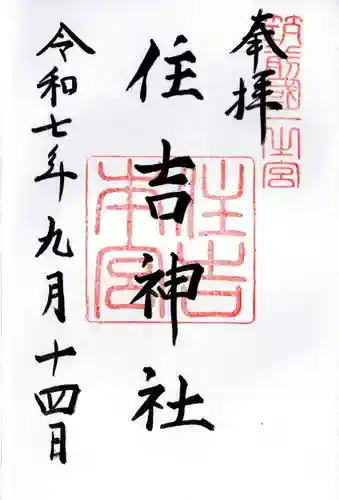 奉拝
筑前國一之宮
住吉神社
住吉本宮
令和七年九月十四日